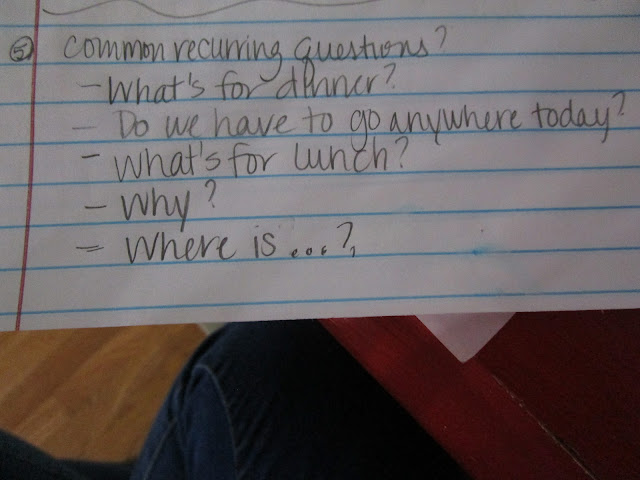 ⑤ common recurring questions?
- What's for dinner?
- Do we have to go anywhere today?
- What's for lunch?
- Why?
- Where is ...?